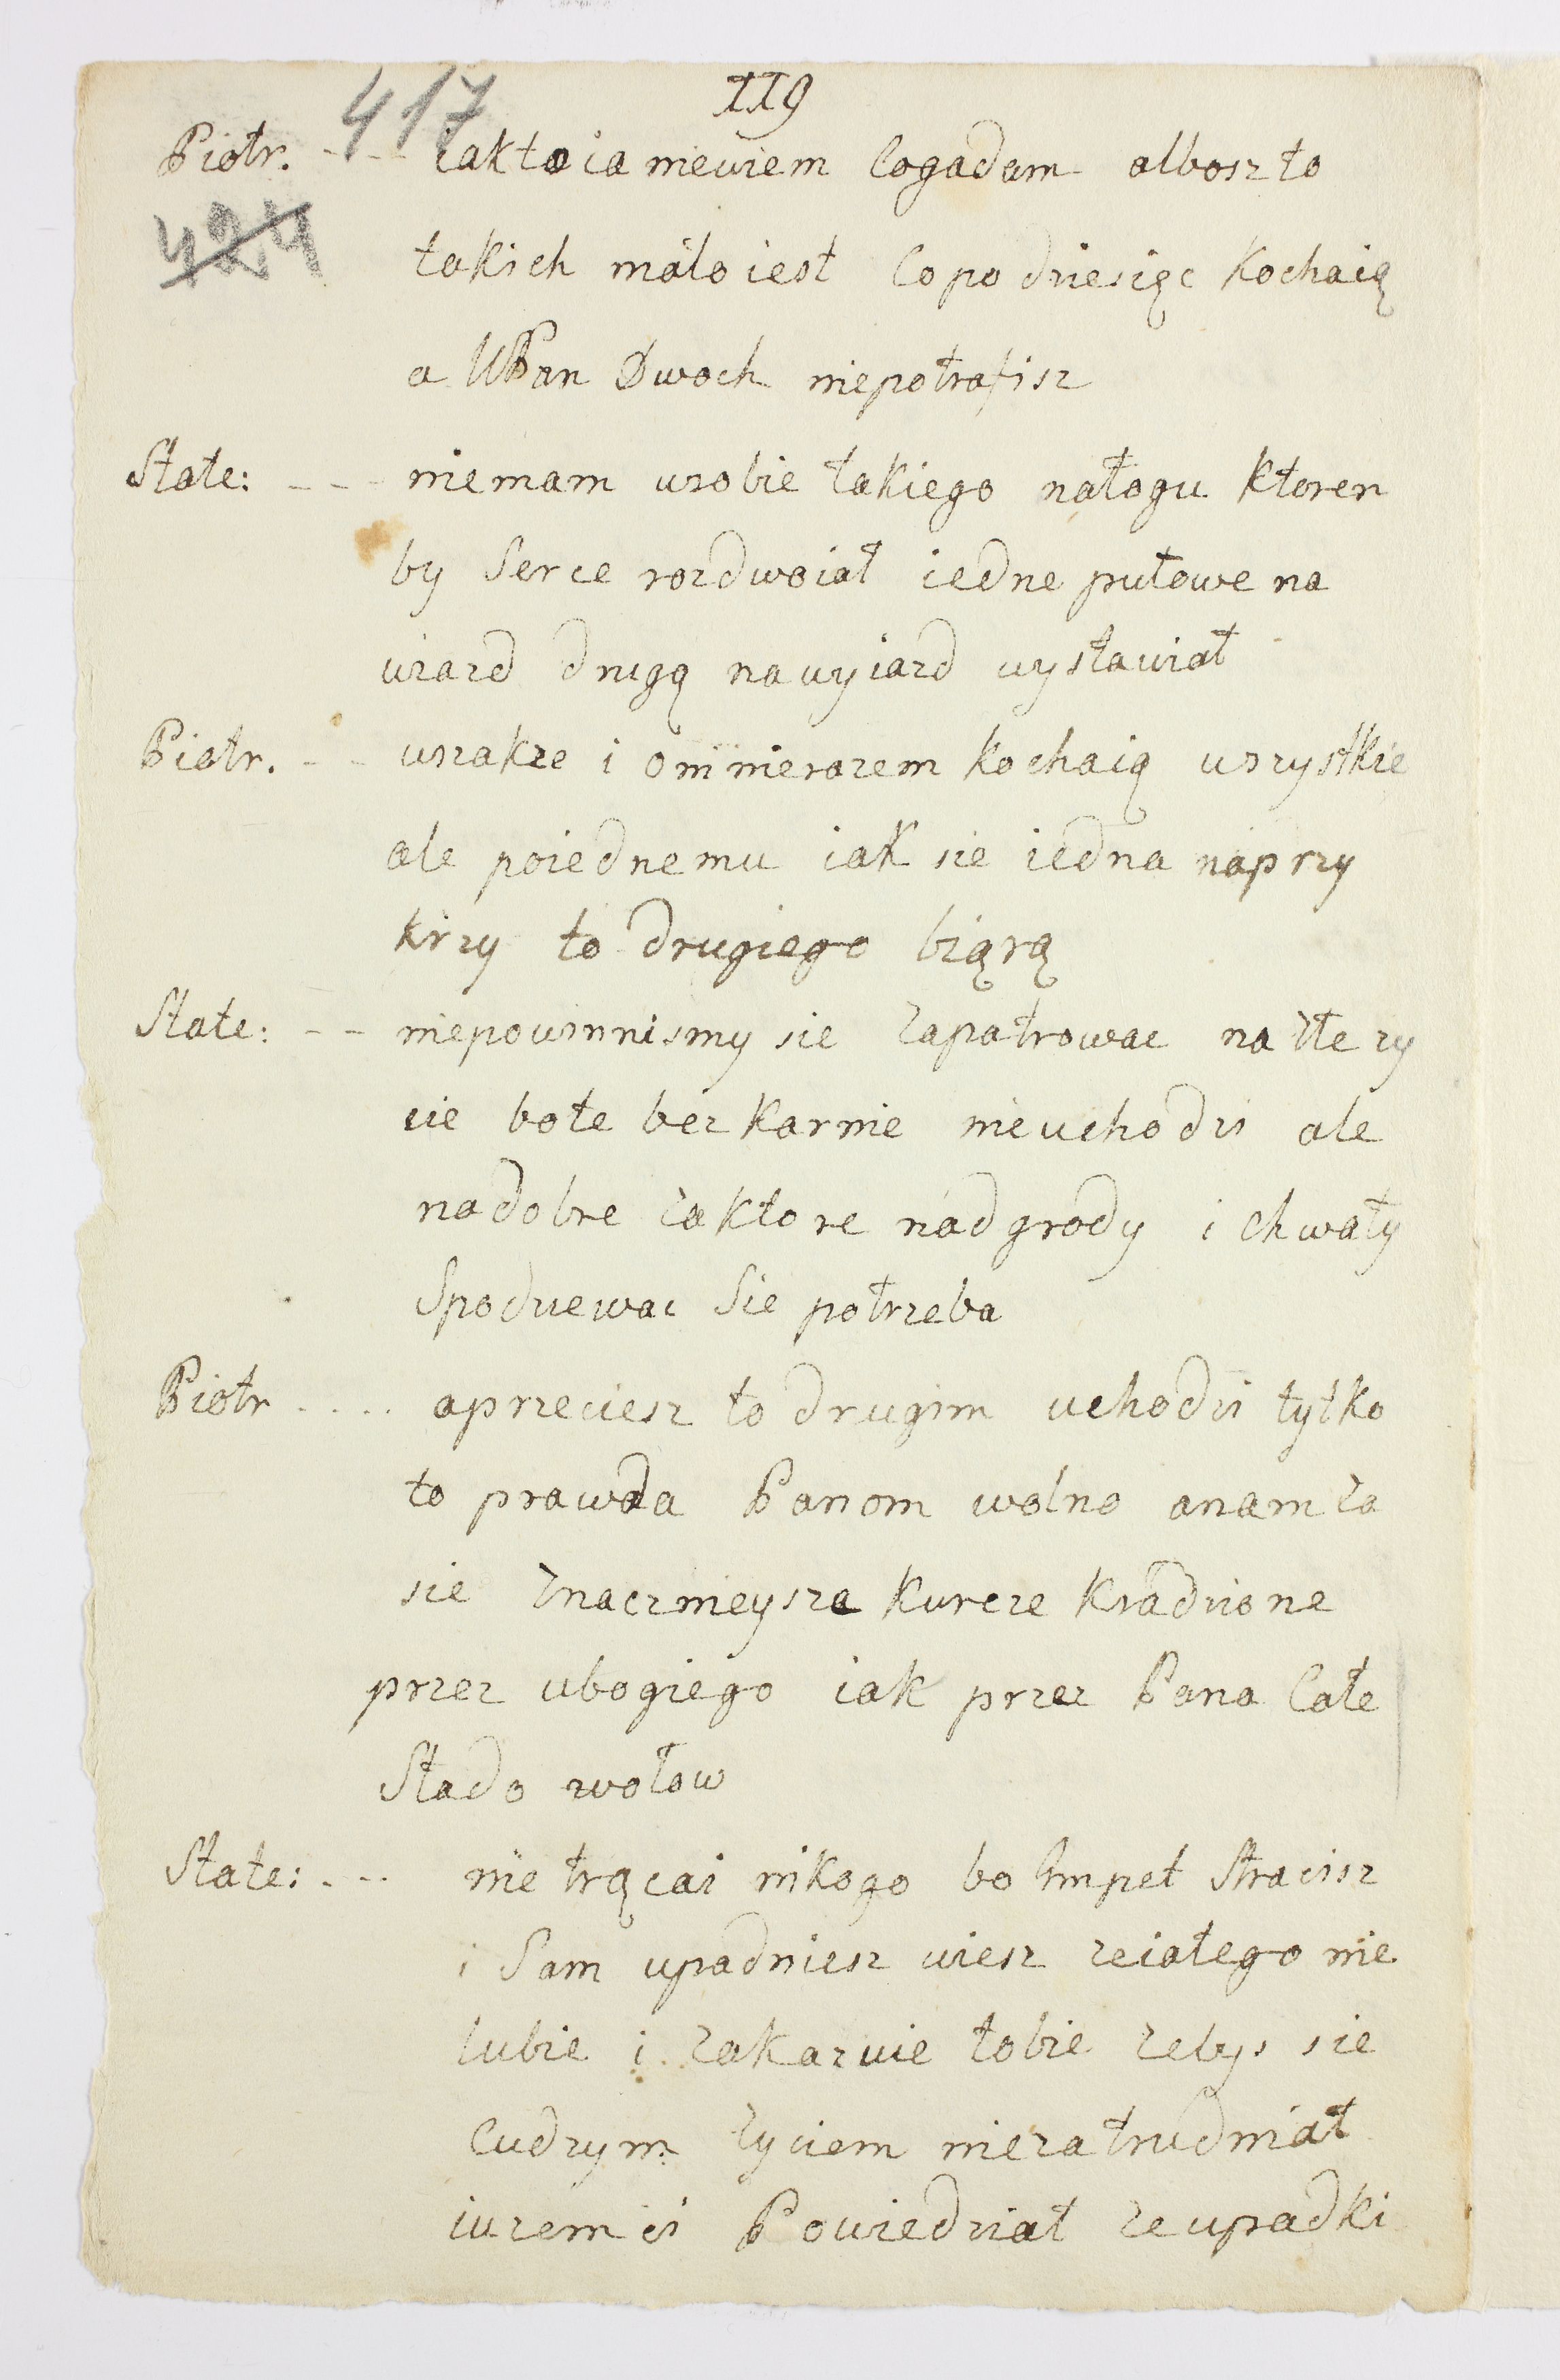 417
119
Piotr. - - - iakto ia niewiem Cogadam albosz to
424
takich mało iest Co po dziesięc Kochaią
a WPan Dwoch niepotrafisz
State: - - - niemam wsobie takiego nałogu Ktoren
by Serce rozdwoiał iedne putowe na
wiazd drugą nawyiazd wystawiał
Piotr. - - wszakze i oni nierazem Kochaią wszystkie
ale poiednemu iak sie iedna naprzy
krzy to drugiego biąrą
State: - - niepowinnismy sie zapatrowac na złe zy
cie bote bez karnie nieuchodzi ale
nadobre zaktore nadgrody i chwały
Spodziewac Sie potrzeba
Piotr - - - - aprzeciesz to drugim uchodzi tylko
to prawda Panom wolno anam za
sie znacznieysze kurcze kradzione
przez ubogiego iak przez Pana Całe
Stado wołow
State: - - - nie trącai nikogo bo Impet Stracisz
i Sam upadniesz wiesz zeiatego nie
lubie i zakazuie tobie zebys sie
Cudzym zyciem niezatrudniał
iuzem ci Powiedział ze upadki